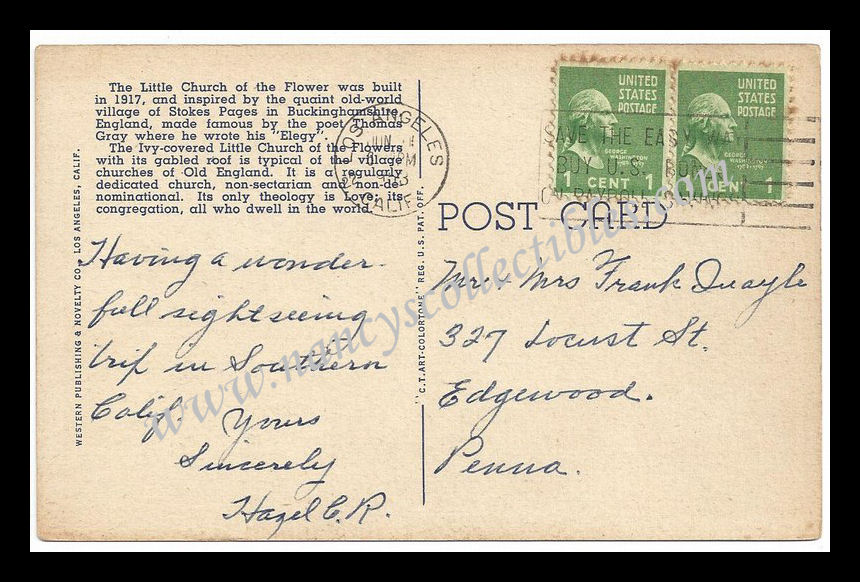 The Little Church of the Flower was built
in 1917, and inspired by the quaint old-world
village of Stokes Pages in Buckinghamshire
England, made famous by the poet Thomas
Gray where he wrote his "Elegy".
The Ivy-covered Little Church of the Flowers
with its gabled roof is typical of the village
churches of Old England. It is a regularly
dedicated church, non-sectarian and non-de-
nominational. Its only theology is Love; its
congregation, all who dwell in the world.
WESTERN PUBLISHING & NOVELTY CO., LOS ANGELES, CALIF.
Having a wonder-
full sightseeing
trip in Southern
Calif. Yours
Sincerely
Hazel C. R.
"C.T. ART-COLORTONE" REG. U.S. PAT. OFF.
LOS ANGELES
JUN
PM
CALIF.
UNITED
STATES
POSTAGE
GEORGE
WASHINGTON
1 CENT 1
UNITED
STATES
POSTAGE
GEORGE
WASHINGTON
CENT 1
SAVE THE EASY WAY
BUY U.S. BONDS
POST CARD
Mr. & Mrs Frank Quayle
327 Locust St.
Edgewood.
Penna.
www.nancyscollectibles.com